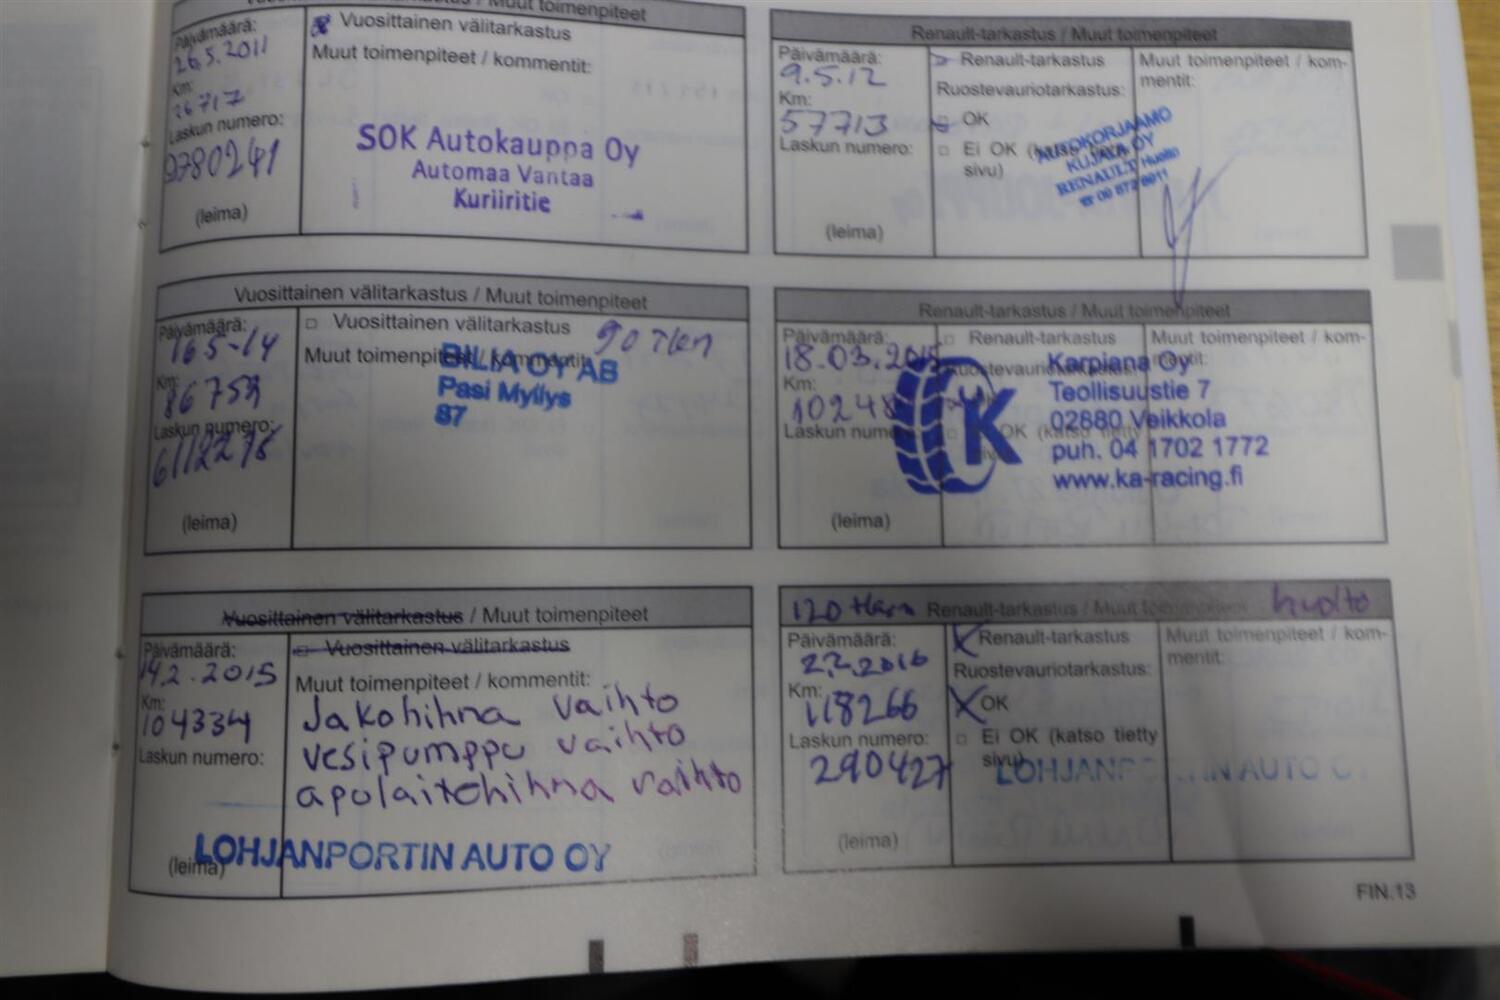 Muut toimenpiteet
Päivämäärä:
26.5.2011
Km:
26717
Laskun numero:
9780241
(leima)
Vuosittainen välitarkastus
Muut toimenpiteet / kommentit:
SOK Autokauppa Oy
Automaa Vantaa
Kuriiritie
Renault-tarkastus / Muut toimenpiteet
Päivämäärä:
9.5.12
Km:
57713
Laskun numero:
(leima)
Renault-tarkastus
Ruostevauriotarkastus:
OK
Ei OK (katso tietty
sivu)
Muut toimenpiteet / kom-
mentit:
AUTOKORJAAMO
KUJALA OY
RENAULT Huolto
Vuosittainen välitarkastus / Muut toimenpiteet
Päivämäärä:
16.5-14
Km:
86759
Laskun numero:
6112278
(leima)
Vuosittainen välitarkastus
90 Tkm
Muut toimenpiteet / kommentit:
BILIA OY AB
Pasi Myllys
87
Renault-tarkastus / Muut toimenpiteet
Päivämäärä:
18.03.2015
Km:
10248
Laskun numero:
(leima)
Renault-tarkastus
Ruostevauriotarkastus:
OK (katso tietty
Muut toimenpiteet / kom-
mentit:
K
Karpiana Oy
Teollisuustie 7
02880 Veikkola
puh. 04 1702 1772
www.ka-racing.fi
Vuosittainen välitarkastus / Muut toimenpiteet
Päivämäärä:
14.2.2015
Km:
104334
Laskun numero:
(leima)
Vuosittainen välitarkastus
Muut toimenpiteet / kommentit:
Jakohihna vaihto
vesipumppu vaihto
apulaitehihna vaihto
LOHJANPORTIN AUTO OY
120 tkm Renault-tarkastus / Muut toimenpiteet huolto
Päivämäärä:
22.2016
Km:
118266
Laskun numero:
290427
(leima)
Renault-tarkastus
Ruostevauriotarkastus:
OK
Ei OK (katso tietty
sivu)
LOHJANPORTIN AUTO OY
Muut toimenpiteet / kom-
mentit:
FIN.13